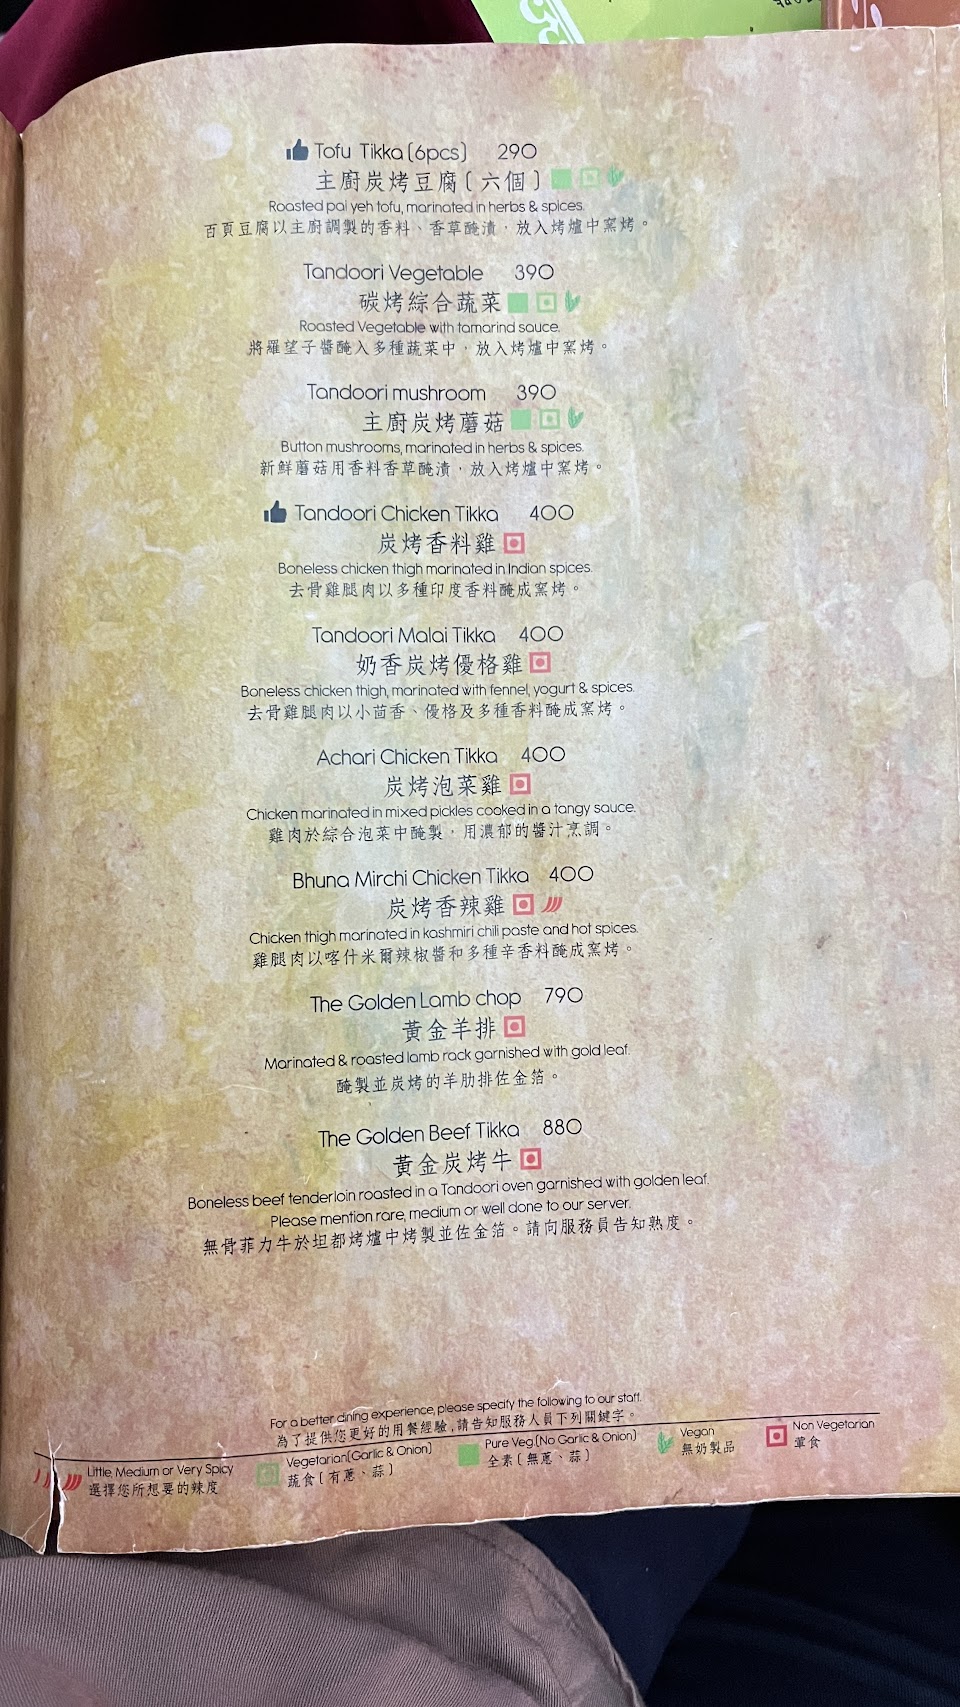 Tofu Tikka (6pcs) 290
主廚炭烤豆腐(六個)
Roasted pai yeh tofu, marinated in herbs & spices.
百頁豆腐以主廚調製的香料、香草醃漬，放入烤爐中窯烤。
Tandoori Vegetable 390
碳烤綜合蔬菜
Roasted Vegetable with tamarind sauce.
將羅望子醬醃入多種蔬菜中，放入烤爐中窯烤。
Tandoori mushroom 390
主廚炭烤蘑菇
Button mushrooms, marinated in herbs & spices.
新鮮蘑菇用香料香草醃漬，放入烤爐中窯烤。
Tandoori Chicken Tikka 400
炭烤香料雞
Boneless chicken thigh marinated in Indian spices.
去骨雞腿肉以多種印度香料醃成窯烤。
Tandoori Malai Tikka 400
奶香炭烤優格雞
Boneless chicken thigh, marinated with fennel, yogurt & spices.
去骨雞腿肉以小茴香、優格及多種香料醃成窯烤。
Achari Chicken Tikka 400
炭烤泡菜雞
Chicken marinated in mixed pickles cooked in a tangy sauce.
雞肉於綜合泡菜中醃製，用濃郁的醬汁烹調。
Bhuna Mirchi Chicken Tikka 400
炭烤香辣雞
Chicken thigh marinated in kashmiri chili paste and hot spices.
雞腿肉以喀什米爾辣椒醬和多種辛香料醃成窯烤。
The Golden Lamb chop 790
黃金羊排
Marinated & roasted lamb rack garnished with gold leaf.
醃製並炭烤的羊肋排佐金箔。
The Golden Beef Tikka 880
黃金炭烤牛
Boneless beef tenderloin roasted in a Tandoori oven garnished with golden leaf.
Please mention rare, medium or well done to our server.
無骨菲力牛於坦都烤爐中烤製並佐金箔。請向服務員告知熟度。
For a better dining experience, please specify the following to our staff.
為了提供您更好的用餐經驗,請告知服務人員下列關鍵字。
Little, Medium or Very Spicy
選擇您所想要的辣度
Vegetarian(Garlic & Onion)
蔬食(有蔥、蒜)
Pure Veg.(No Garlic & Onion)
全素(無蔥、蒜)
Vegan
無奶製品
Non Vegetarian
葷食